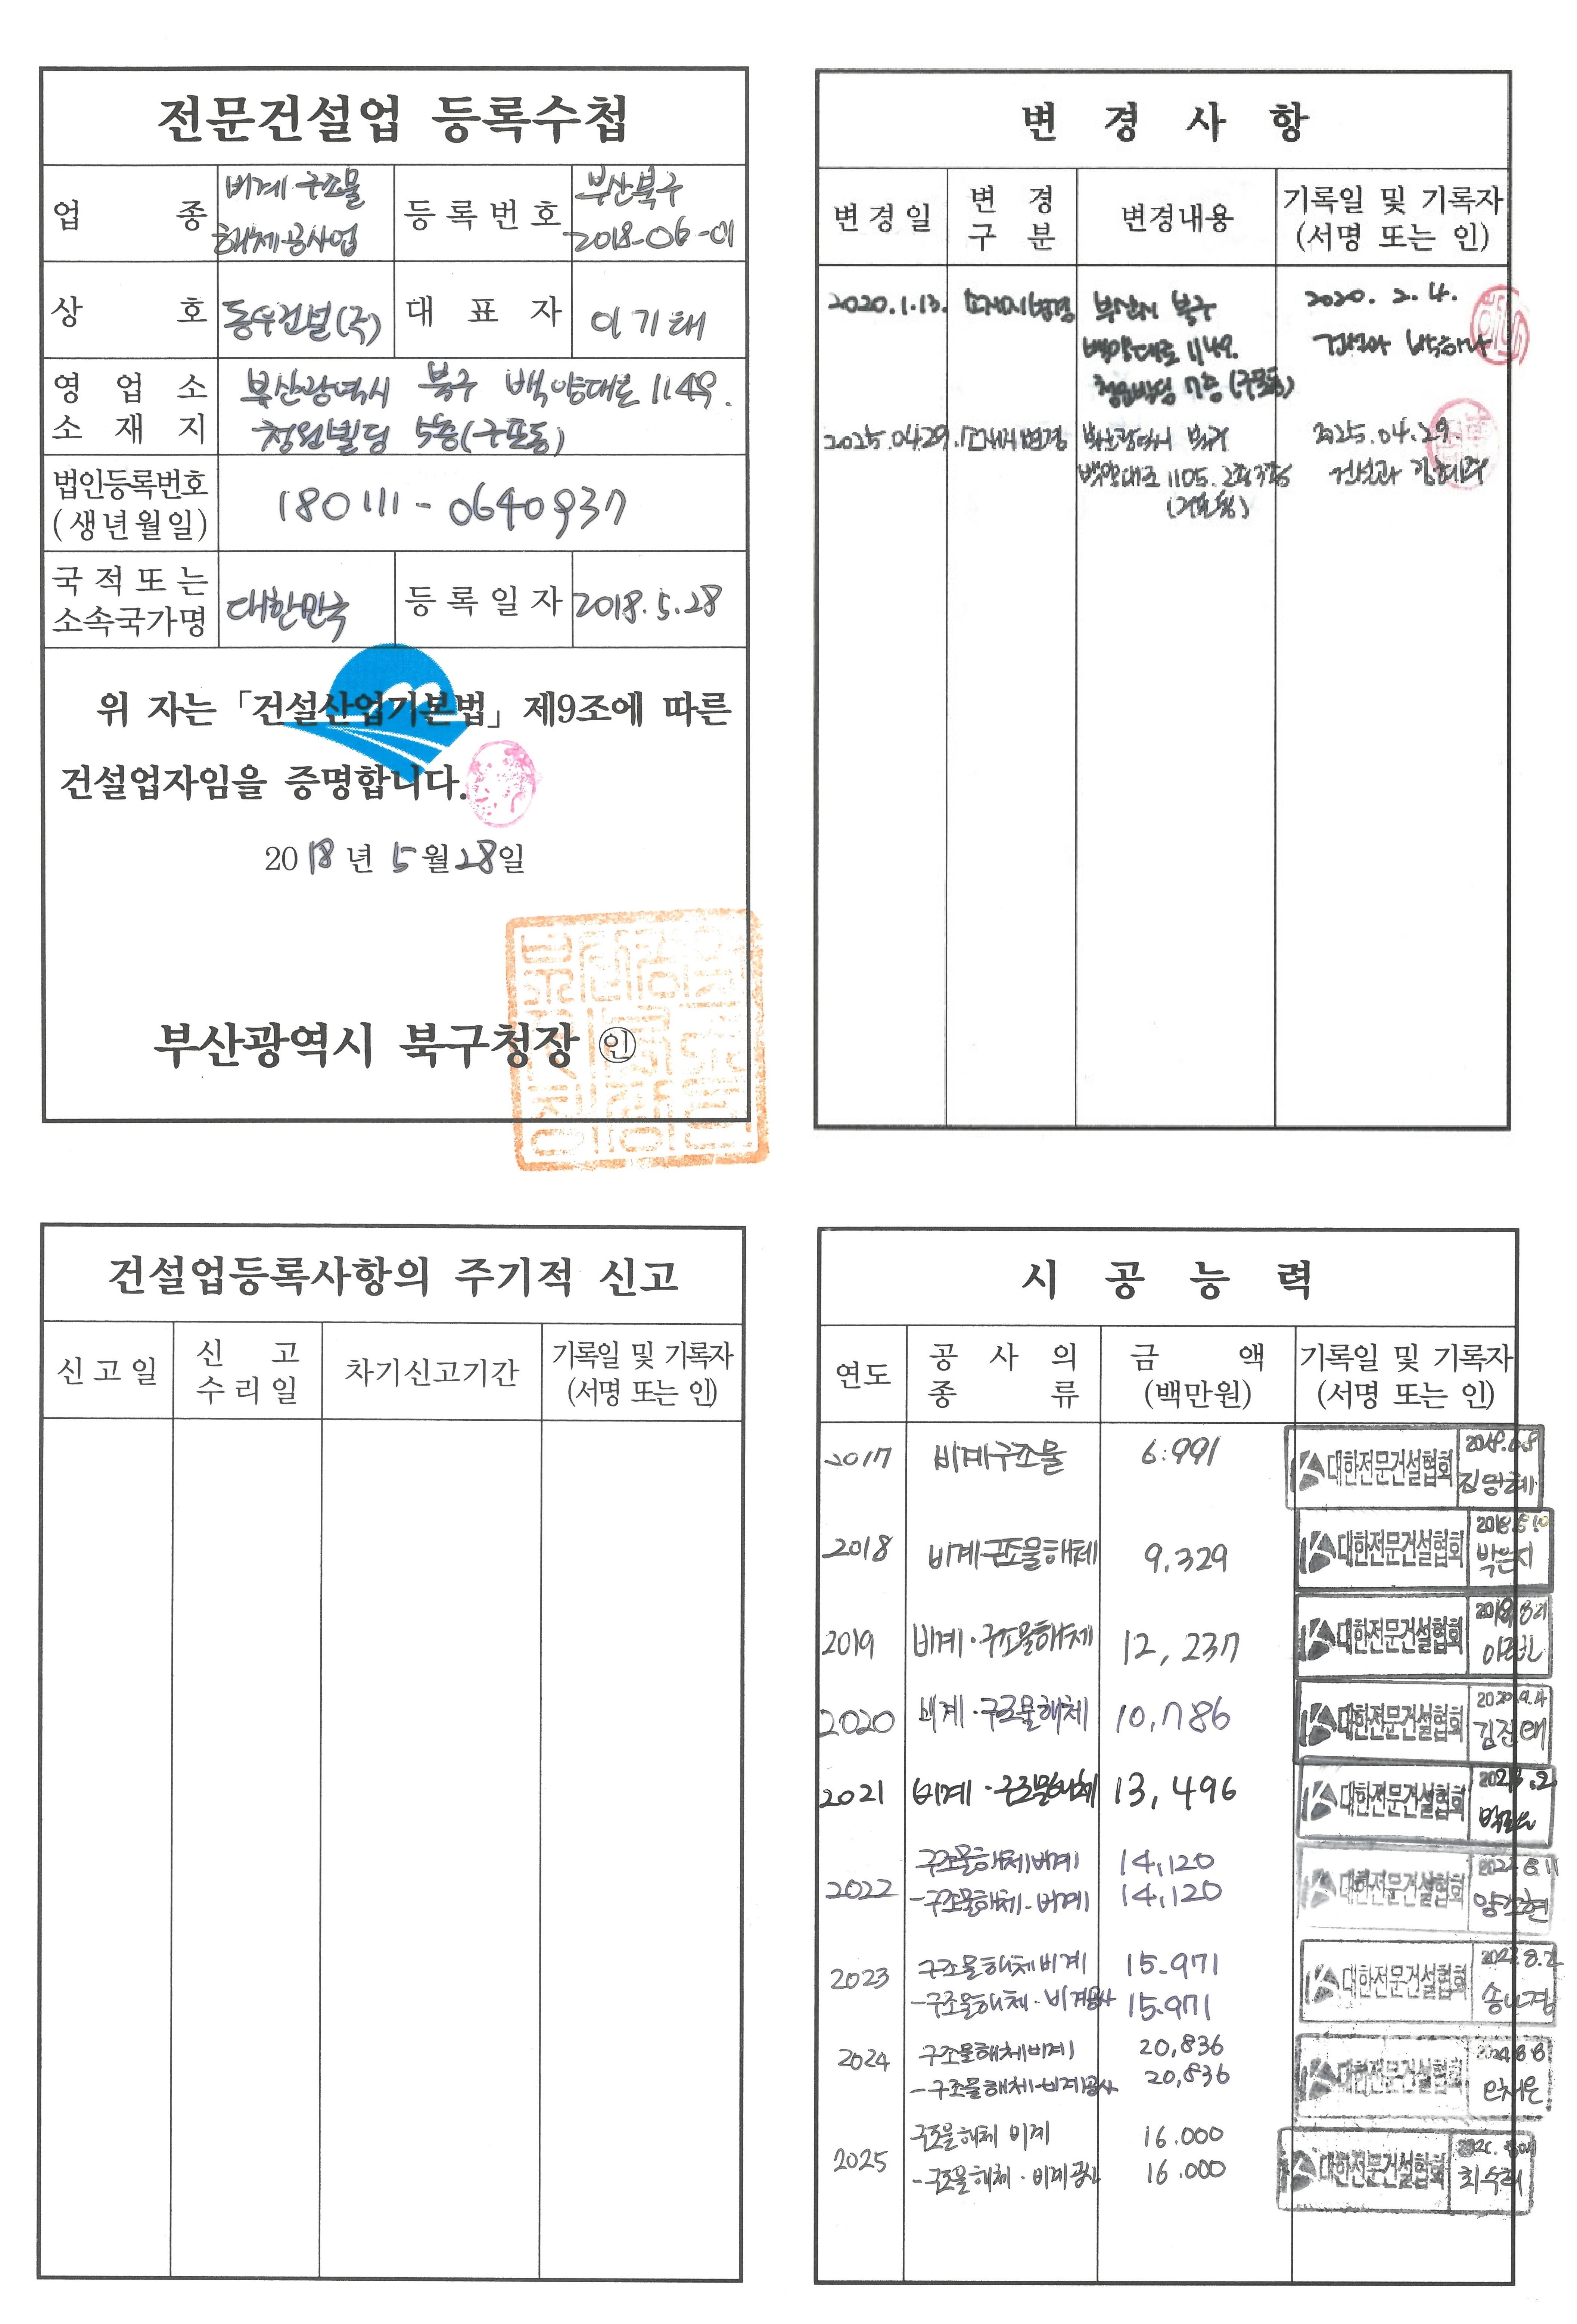 전문건설업 등록수첩
업 종
비계·구조물
해체공사업
등록번호
부산북구
2018-06-01
상 호
동우건설(주)
대 표 자
이기태
영 업 소
소 재 지
부산광역시 북구 백양대로 1149.
청원빌딩 5층(구포동)
법인등록번호
(생년월일)
180111-0640937
국적또는
소속국가명
대한민국
등록일자
2018.5.28
위 자는 「건설산업기본법」 제9조에 따른
건설업자임을 증명합니다.
2018년 5월 28일
부산광역시 북구청장 ㊞
변 경 사 항
변경일
변 경
구 분
변경내용
기록일 및 기록자
(서명 또는 인)
2020.1.13.
소재지변경
부산시 북구
백양대로 1149.
청원빌딩 7층 (구포동)
2020. 2. 4.
건설과 박하나
2025.04.29.
소재지변경
부산광역시 북구
백양대로 1105.
2025.04.29.
건설과
건설업등록사항의 주기적 신고
신고일
신 고
수리일
차기신고기간
기록일 및 기록자
(서명 또는 인)
시 공 능 력
연도
공 사 의
종 류
금 액
(백만원)
기록일 및 기록자
(서명 또는 인)
2017
비계구조물
6.991
대한전문건설협회
2018
비계구조물해체
9.329
대한전문건설협회
박은지
2019
비계·구조물해체
12,237
대한전문건설협회
2020
비계·구조물해체
10,786
대한전문건설협회
2020.9.4
2021
비계·구조물해체
13,496
대한전문건설협회
2022
구조물해체비계
14,120
-구조물해체·비계
14,120
대한전문건설협회
2022.8.11
2023
구조물해체비계
15.971
-구조물해체·비계공사
15.971
대한전문건설협회
2024
구조물해체비계
20,836
-구조물해체·비계공사
20,836
대한전문건설협회
2025
구조물해체 비계
16.000
-구조물해체·비계공사
16.000
대한전문건설협회